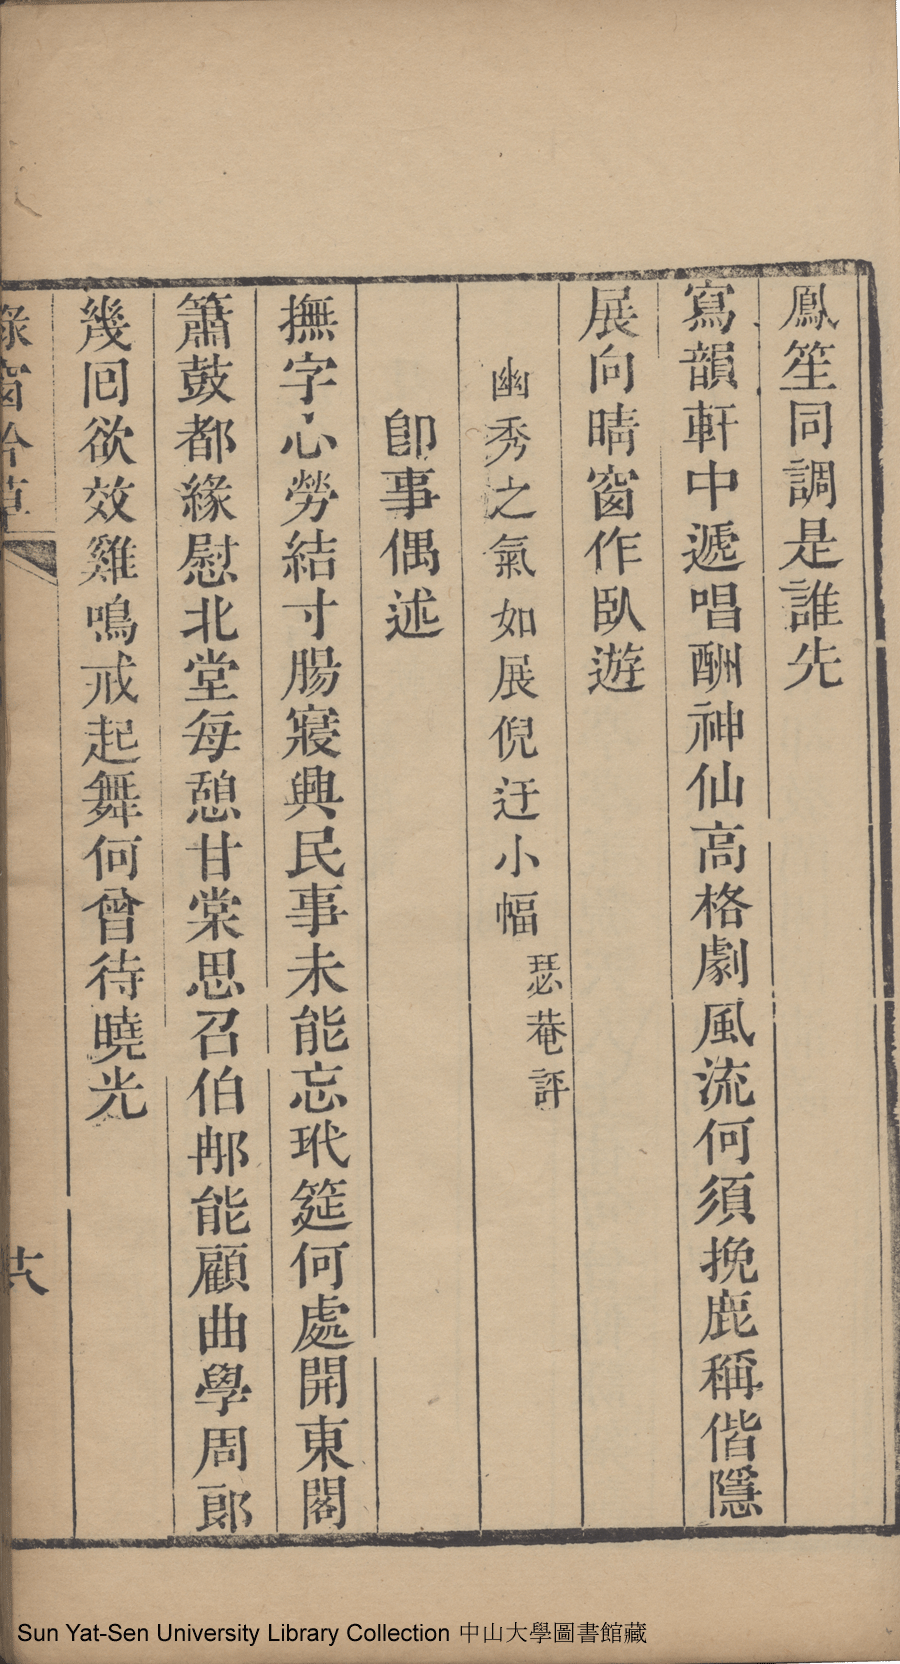 鳳笙同調是誰先
寫韻軒中遞唱酬神仙高格劇風流何須挽鹿稱偕隱
展向晴窗作臥遊
幽秀之氣如展倪迂小幅瑟菴評
卽事偶述
撫字心勞結寸腸寢興民事未能忘玳筵何處開東閣
簫鼓都緣慰北堂每憩甘棠思召伯那能顧曲學周郎
幾回欲效雞鳴戒起舞何曾待曉光
綠窗吟草
廿八
Sun Yat-Sen University Library Collection 中山大學圖書館藏